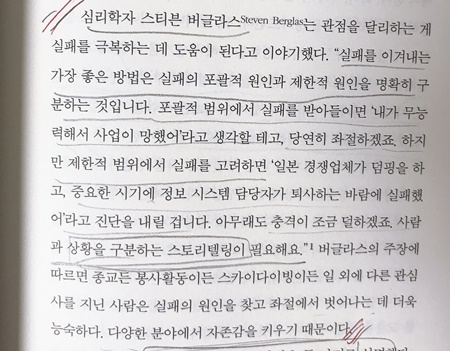 심리학자 스티븐 버글라스Steven Berglas는 관점을 달리하는 게
실패를 극복하는 데 도움이 된다고 이야기했다. “실패를 이겨내는
가장 좋은 방법은 실패의 포괄적 원인과 제한적 원인을 명확히 구
분하는 것입니다. 포괄적 범위에서 실패를 받아들이면 ‘내가 무능
력해서 사업이 망했어’라고 생각할 테고, 당연히 좌절하겠죠. 하지
만 제한적 범위에서 실패를 고려하면 ‘일본 경쟁업체가 덤핑을 하
고, 중요한 시기에 정보 시스템 담당자가 퇴사하는 바람에 실패했
어’라고 진단을 내릴 겁니다. 아무래도 충격이 조금 덜하겠죠. 사람
과 상황을 구분하는 스토리텔링이 필요해요.”1 버글라스의 주장에
따르면 종교든 봉사활동이든 스카이다이빙이든 일 외에 다른 관심
사를 지닌 사람은 실패의 원인을 찾고 좌절에서 벗어나는 데 더욱
능숙하다. 다양한 분야에서 자존감을 키우기 때문이다.